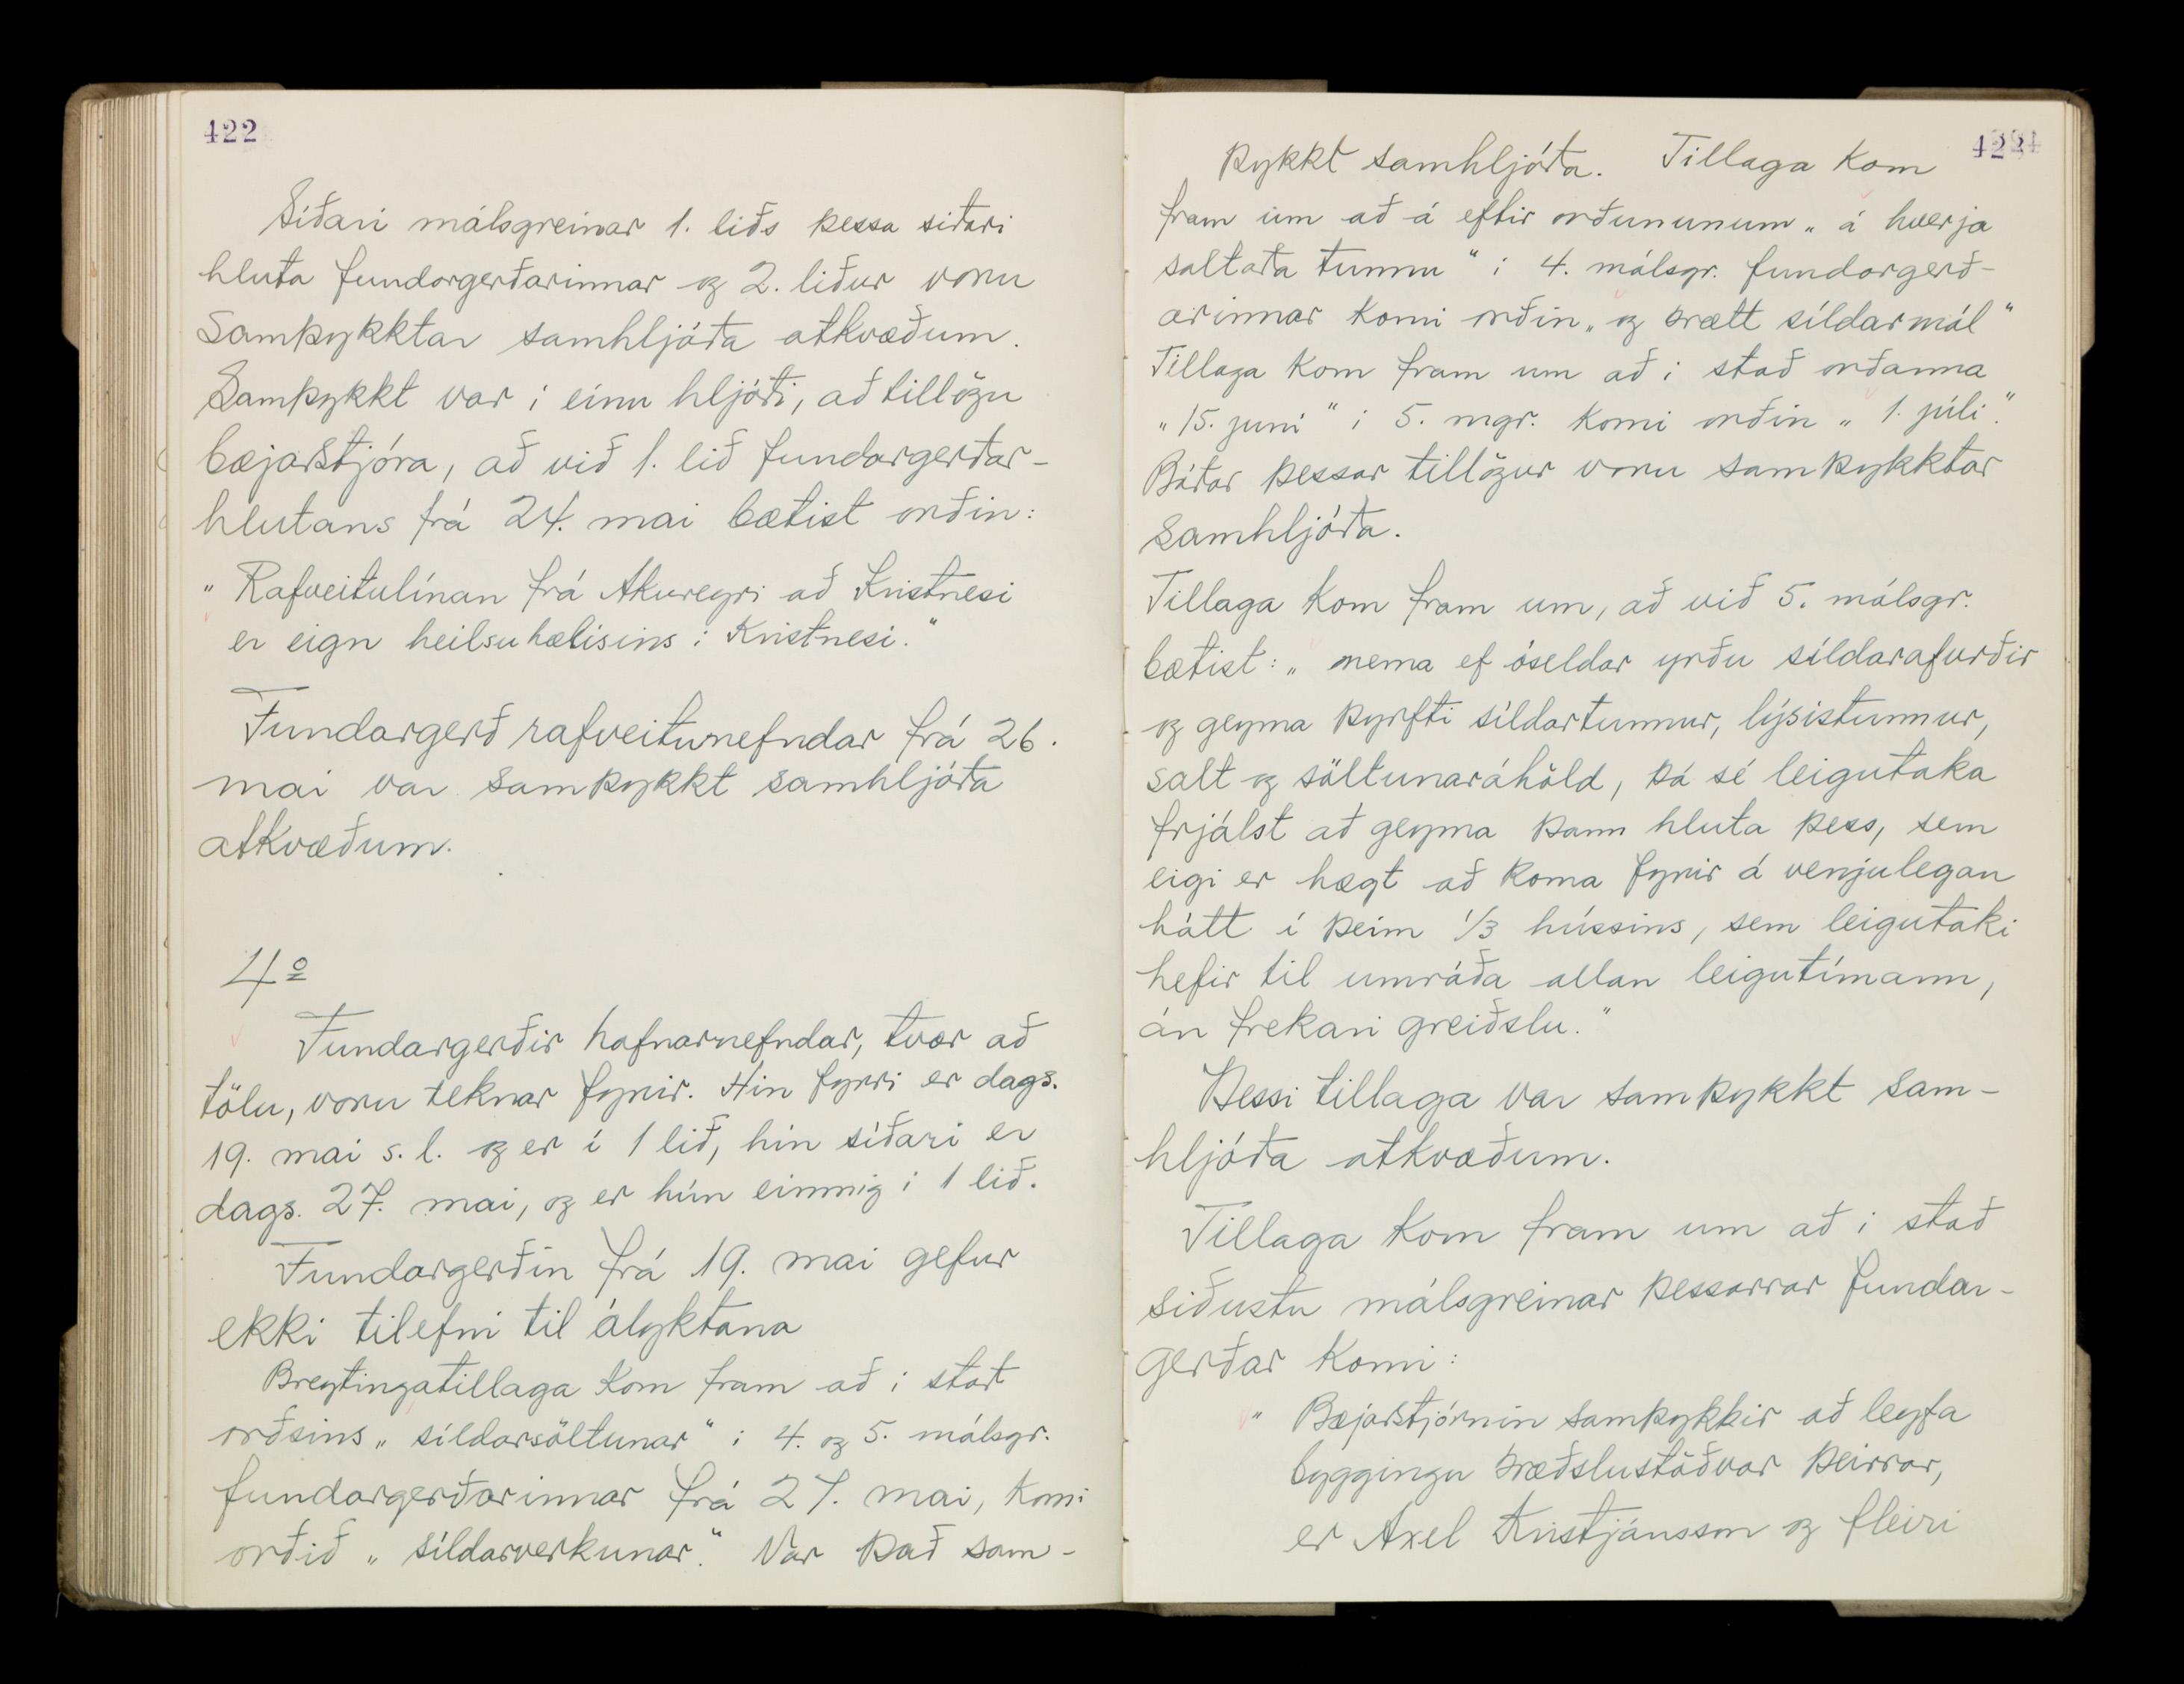 422
Síðari málsgreinar 1. liðs þessa síðari
hluta fundargerðarinnar og 2. liður voru
samþykktar samhljóða atkvæðum.
Samþykkt var í einu hljóði, að tillögu
bæjarstjóra, að við 1. lið fundargerðar-
hlutans frá 24. mai bætist orðin:
„Rafveitulínan frá Akureyri að Kristnesi
er eign heilsuhælisins í Kristnesi."
Fundargerð rafveitunefndar frá 26.
mai var samþykkt samhljóða
atkvæðum.
4º
Fundargerðir hafnarnefndar, tvær að
tölu, voru teknar fyrir. Hin fyrri er dags.
19. mai s.l. og er í 1 lið, hin síðari er
dags. 27. mai, og er hún einnig í 1 lið.
Fundargerðin frá 19. mai gefur
ekki tilefni til ályktana
Breytingatillaga kom fram að í stað
orðsins „síldarsöltunar" í 4. og 5. málsgr.
fundargerðarinnar frá 27. mai, komi
orðið „síldarverkunar". Var það sam-
þykkt samhljóða. Tillaga kom
fram um að á eftir orðununum „á hverja
saltaða tunnu" í 4. málsgr. fundargerð-
arinnar komi orðin „og brætt síldarmál"
Tillaga kom fram um að í stað orðanna
„15. juni" í 5. mgr. komi orðin „1. júli".
Báðar þessar tillögur voru samþykktar
samhljóða.
Tillaga kom fram um, að við 5. málsgr.
bætist: „nema ef óseldar yrðu síldarafurðir
og geyma þyrfti síldartunnur, lýsistunnur,
salt og söltunaráhöld, þá sé leigutaka
frjálst að geyma þann hluta þess, sem
eigi er hægt að koma fyrir á venjulegan
hátt í þeim 1/3 hússins, sem leigutaki
hefir til umráða allan leigutímann,
án frekari greiðslu."
Þessi tillaga var samþykkt sam-
hljóða atkvæðum.
Tillaga kom fram um að í stað
síðustu málsgreinar þessarrar fundar-
gerðar komi:
„Bæjarstjórnin samþykkir að leyfa
byggingu bræðslustöðvar þeirrar,
er Axel Kristjánsson og fleiri